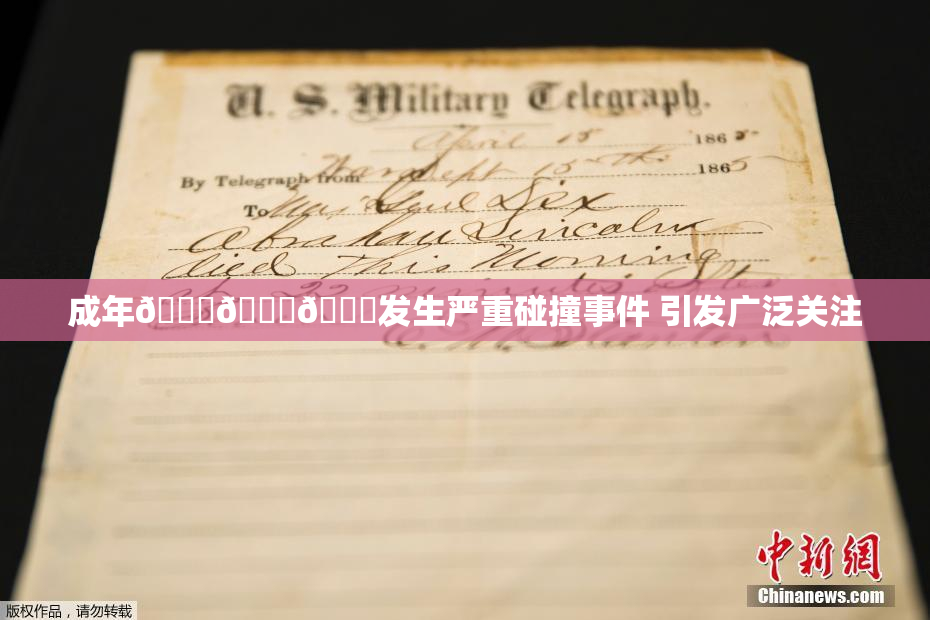 U. S. Military Telegraph.
April 15 1865
By Telegraph from War Dept 15th 1865
To Maj Genl Dix
Abraham Lincoln
died This Morning
at 22 minutes after
成年ð ð ð 发生严重碰撞事件 引发广泛关注
中新网
Chinanews.com
版权作品,请勿转载